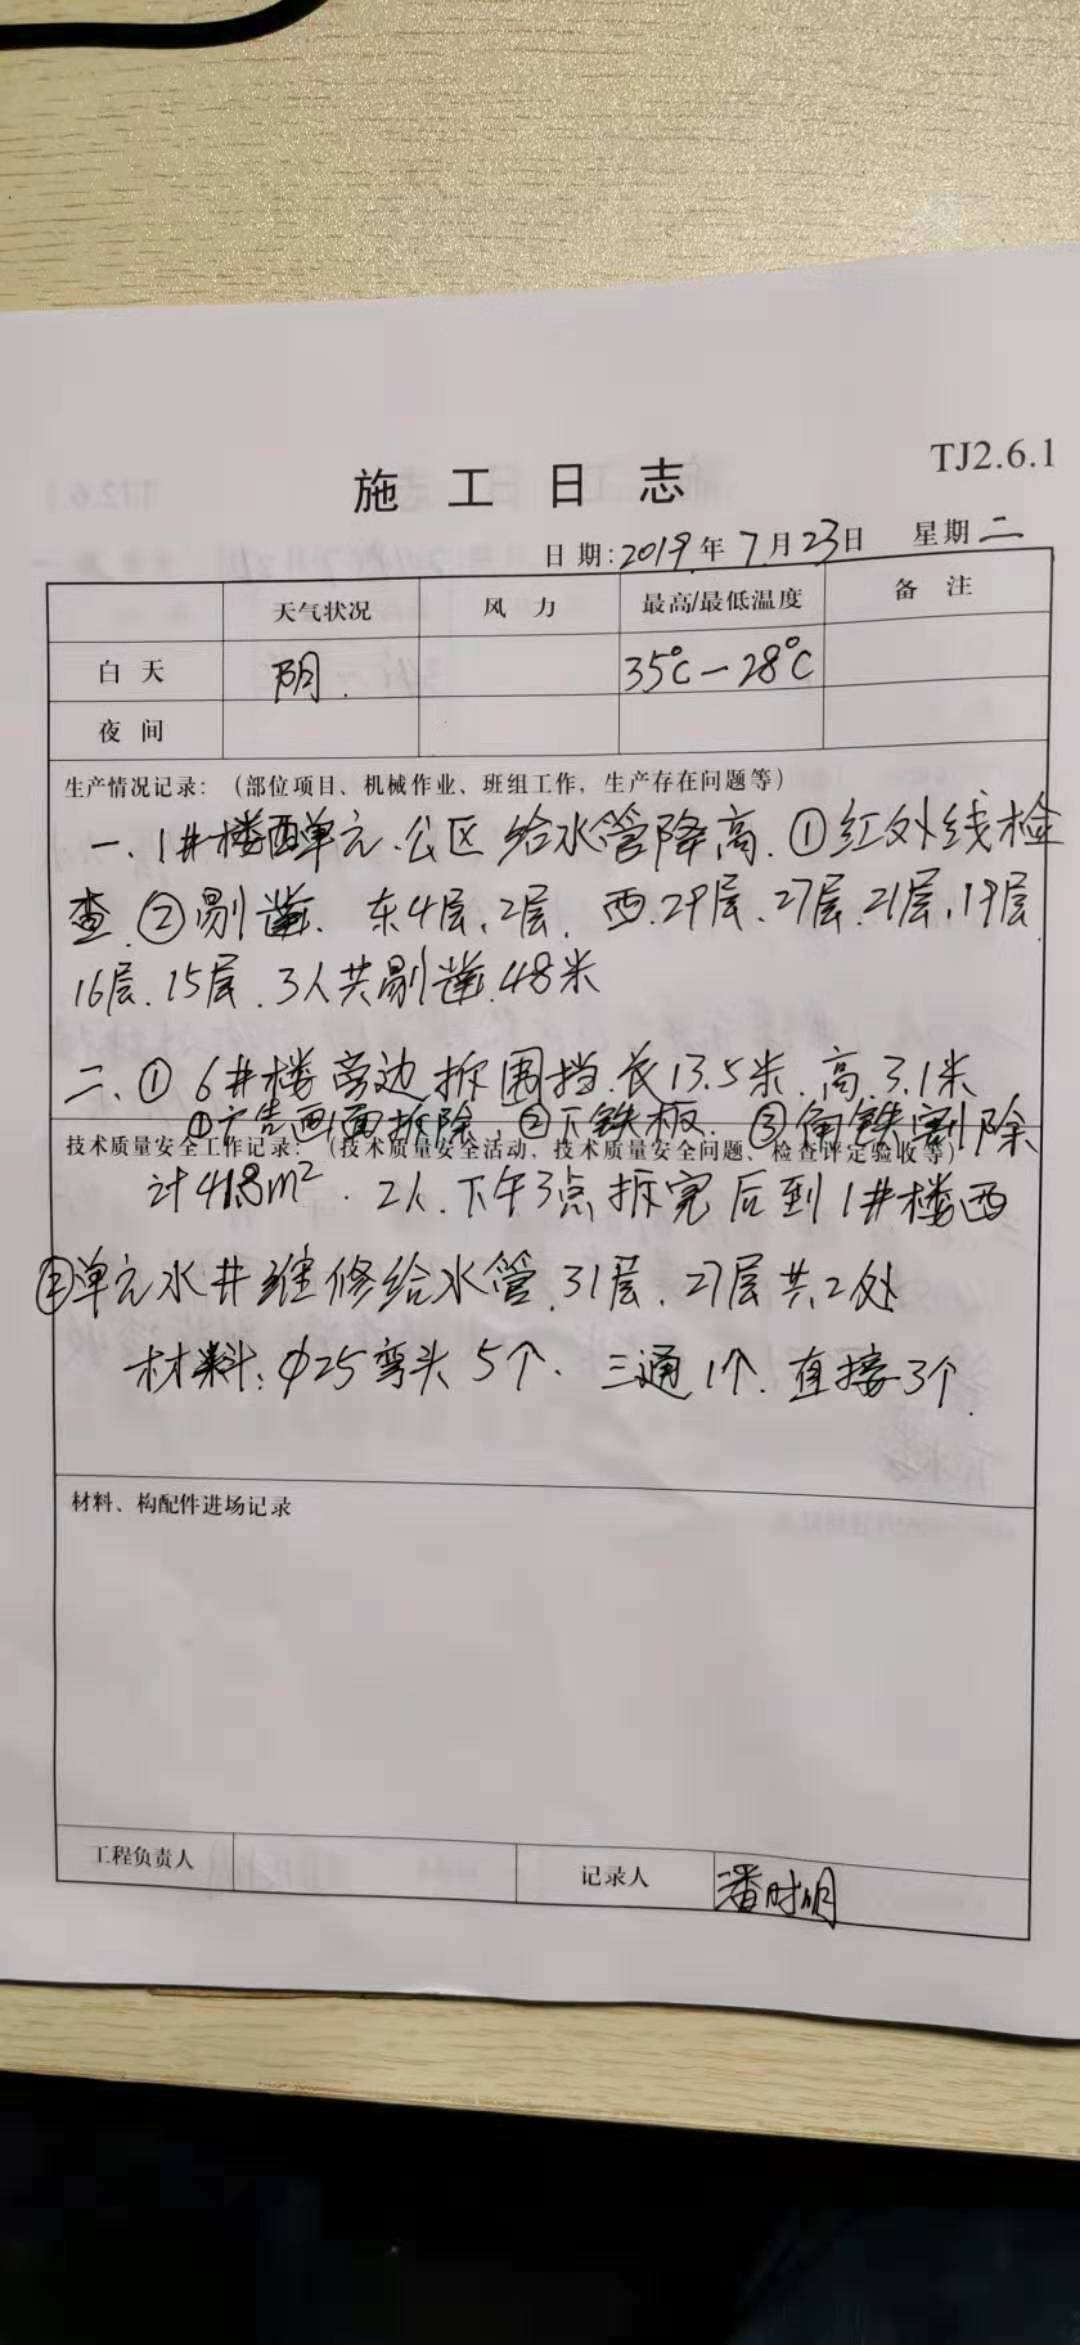 TJ2.6.1
施工日志
日期:2019年7月23日 星期二
天气状况 风力 最高/最低温度 备注
白天 阴. 35℃-28℃
夜间
生产情况记录:(部位项目、机械作业、班组工作,生产存在问题等)
一、1#楼西单元、公区给水管降高.①红外线检
查.②剔凿、东4层、2层、西.29层、27层.21层、19层
16层、15层.3人共剔凿.48米
二、①6#楼旁边拆围挡.长13.5米.高.3.1米
①广告画面拆除.②下铁板.③角铁割除
技术质量安全工作记录:(技术质量安全活动、技术质量安全问题、检查评定验收等)
计41.8m².2人.下午3点拆完后到1#楼西
②单元水井维修给水管.31层、27层共2处
材料:φ25弯头5个、三通1个.直接3个.
材料、构配件进场记录
工程负责人 记录人 潘时明